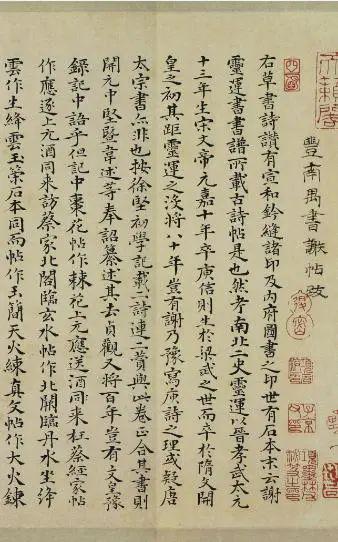 豐南禺書謝帖攷
右草書詩讚有宣和鈐縫諸印及內府圖書之印世有石本末云謝
靈運書書譜所載古詩帖是也然考南北二史靈運以晉孝武太元
十三年生宋文帝元嘉十年卒庾信則生於梁武之世而卒於隋文開
皇之初其距靈運之没將八十年豈有謝乃豫寫庾詩之理或疑唐
太宗書亦非也按徐堅初學記載二詩連二首與此卷正合其書則
開元中堅暨韋述等奉詔纂述其去貞觀又將百年豈有文皇豫
錄記中語乎但記中棗花帖作棘花上元應送酒同来枉蔡經家帖
作應逐上元酒同来訪蔡家北閣臨玄水帖作北闕臨丹水坐絳
雲作生絳雲玉策石本同而帖作玉簡天火練真文帖作大火鍊
天籟閣